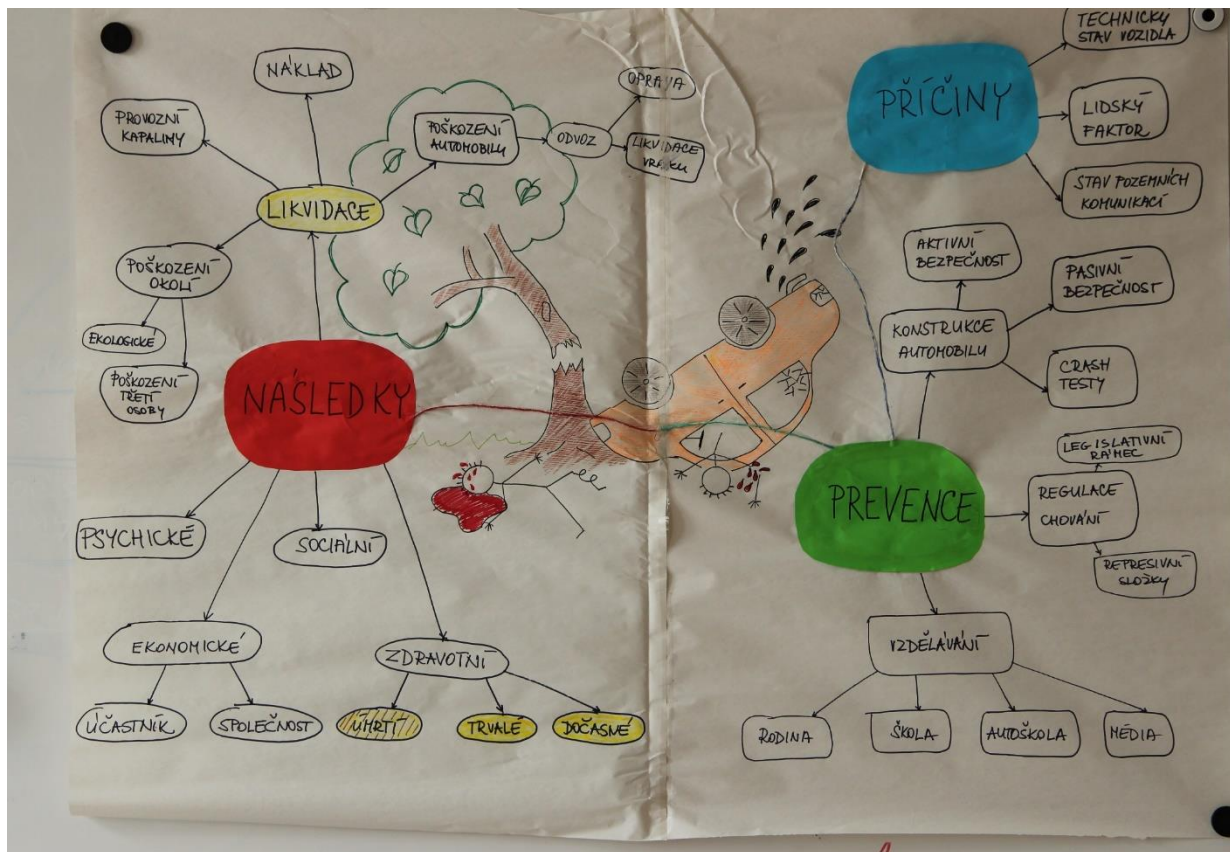 NÁKLAD
PROVOZNÍ
KAPALINY
POŠKOZENÍ
AUTOMOBILU
ODVOZ
OPRAVA
LIKVIDACE
VRAKU
LIKVIDACE
POŠKOZENÍ
OKOLÍ
EKOLOGICKÉ
POŠKOZENÍ
TŘETÍ
OSOBY
NÁSLEDKY
PSYCHICKÉ
SOCIÁLNÍ
EKONOMICKÉ
ÚČASTNÍK
SPOLEČNOST
ZDRAVOTNÍ
ÚMRTÍ
TRVALÉ
DOČASNÉ
PŘÍČINY
TECHNICKÝ
STAV VOZIDLA
LIDSKÝ
FAKTOR
STAV POZEMNÍCH
KOMUNIKACÍ
AKTIVNÍ
BEZPEČNOST
PASIVNÍ
BEZPEČNOST
KONSTRUKCE
AUTOMOBILU
CRASH
TESTY
PREVENCE
LEGISLATIVNÍ
RÁMEC
REGULACE
CHOVÁNÍ
REPRESIVNÍ
SLOŽKY
VZDĚLÁVÁNÍ
RODINA
ŠKOLA
AUTOŠKOLA
MÉDIA